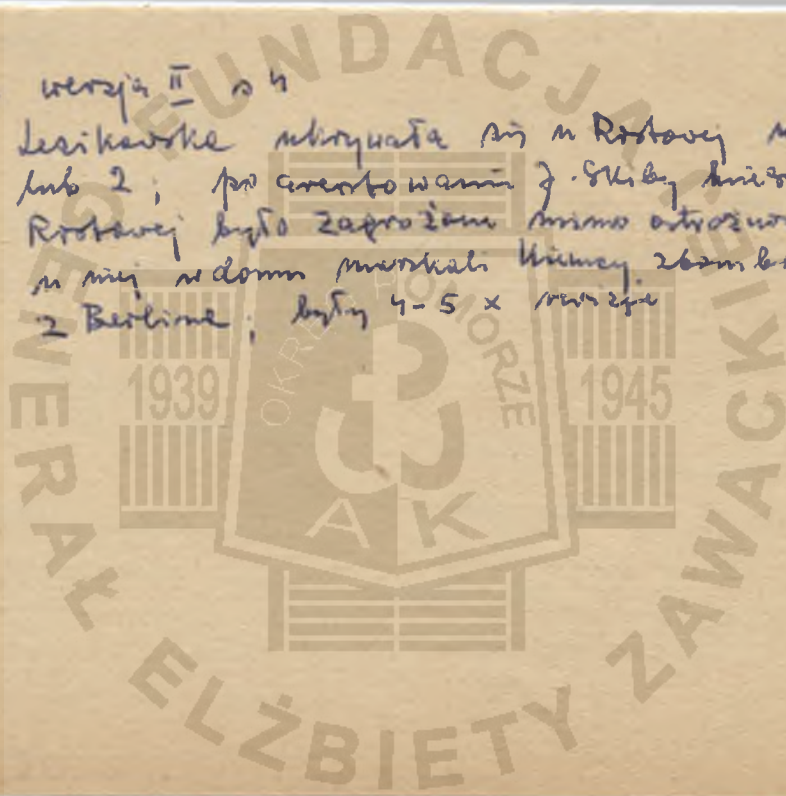 wersja II s 4
Lesikowska ukrywała się u Rostovej
lub 2; po aresztowaniu J. Skiby
Rostovej było zagrożone mimo
u niej w domu mieszkali Niemcy
z Berlina; były 4-5 x rewizje
FUNDACJA
GENERAŁ ELŻBIETY ZAWACKIEJ
OKRĘG POMORZE
1939
1945
AK